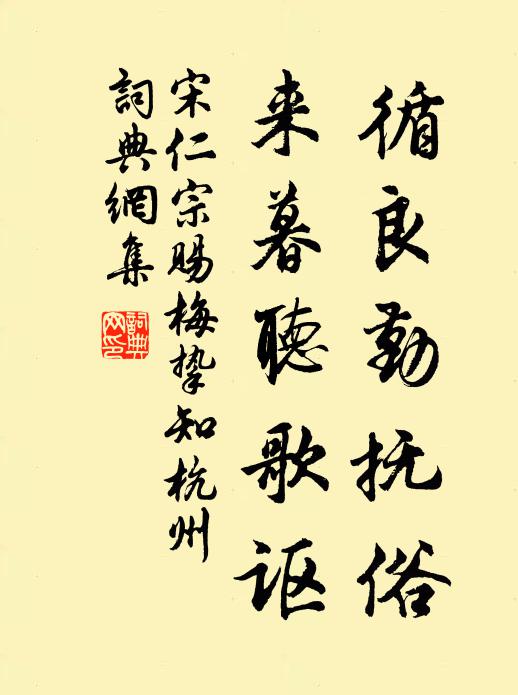 循良勤抚俗
来暮聽歌讴
宋仁宗赐梅挚知杭州
詞典網集
詞典網印